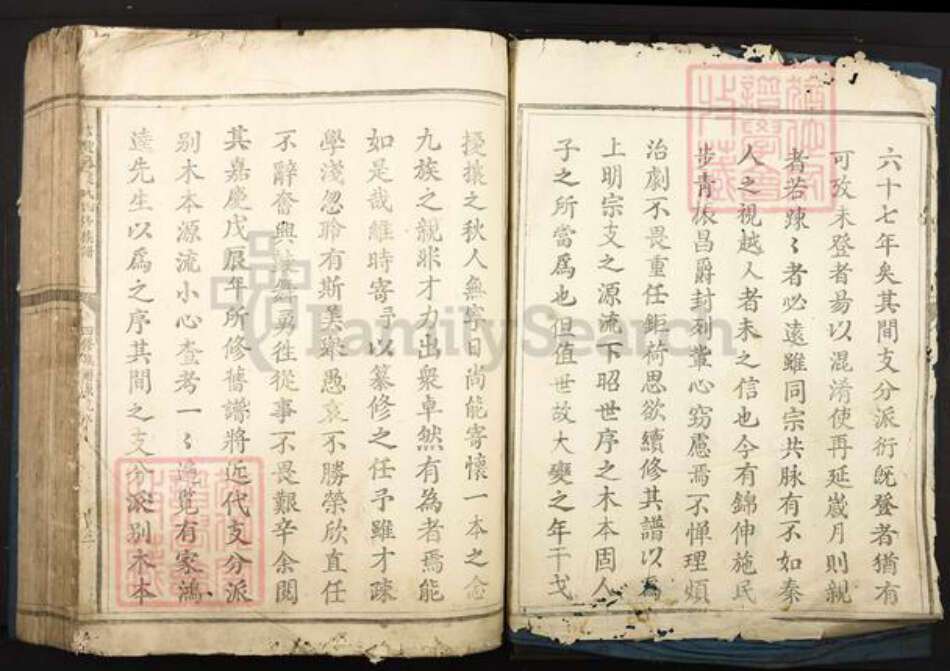 六十七年矣其間支分派衍旣登者猶有
可攷未登者易以混淆使再延歲月則親
者若踈〻者必遠雖同宗共脉有不如秦
人之視越人者未之信也今有錦伸施民
步青振昌爵封列軰心窈慮焉不惮理煩
治劇不畏重任鉅荷思欲續修其譜以爲
上明宗支之源流下昭世序之木本固人
子之所當爲也但值世故大變之年干戈
擾攘之秋人無寧日尚能寄懷一本之念
九族之親非才力出衆卓然有為者焉能
如是哉維時寄予以纂修之任予雖才疎
學淺忽聆有斯美舉愚衷不勝榮欣直任
不辭奮興鼓舞勇往從事不畏艱辛余閱
其嘉慶戊辰年所修舊譜將近代支分派
别木本源流小心查考一〻遍览有家鴻
逵先生以爲之序其間之支分派别木本
FamilySearch